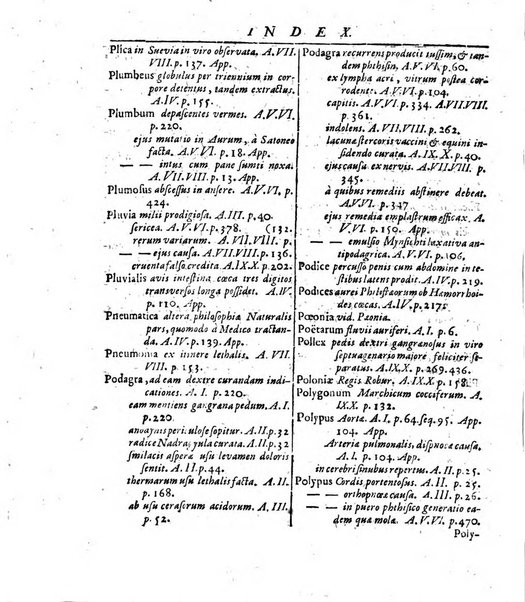 INDEX.
Plica in Suevia in viro observata. A. VII.
VIII. p. 137. App.
Plumbeus globulus per triennium in cor-
pore detentus, tandem extractus.
A. IV. p. 155.
Plumbum depascentes vermes. A. V. VI.
p. 220.
ejus mutatio in Aurum, à Satoneo
facta. A. V. VI. p. 18. App.
— — intus cum pane sumti noxa.
A. VII. VIII. p. 13. App.
Plumosus abscessus in ansere. A. V. VI. p.
424.
Pluvia milii prodigiosa. A. III. p. 40.
sericea. A. VI. p. 378. (132.
rerum variarum. A. VII. VIII. p.
— — ejus causa. A. VI. p. 136.
cruenta falso credita. A. IX. p. 202.
Pluvialis avis intestina cœca tres digitos
transversos longa possidet. A. IV.
p. 110. App.
Pneumatica altera philosophia Naturalis
pars, quomodo à Medico tractan-
da. A. IV. p. 139. App.
Pneumonia ex innere lethalis. A. VII.
VIII. p. 153.
Podagra, ad eam dextre curandam indi-
cationes. A. I. p. 220.
eam mentiens gangræna pedum. A. I.
p. 200.
anodynis periculose sopitur. A. II. p. 32
radice Nadra; yula curata. A. II. p. 32
smilacis asperæ usu levamen doloris
sentit. A. II. p. 44.
thermarum usu lethalis facta. A. II.
p. 168.
ab usu cerasorum acidorum. A. III.
p. 52.
Podagra recurrens producit tussim, & tan-
dem phthisin. A. V. VI. p. 60.
ex lympha acri, vitrum postea cor-
rodente. A. I. p. 344.
capitis. A. VI. p. 334. A. VII. VIII.
p. 361.
indolens. A. VII. p. 262.
lacunæ stercoris vaccini, & equini in-
sidendo curata. A. IX. X. p. 40.
ejus causa ex nervis. A. VII. VIII. p.
345.
à quibus remediis abstinere debeat.
A. VI. p. 347.
ejus remedia emplastrum efficax. A.
VI. p. 150. App.
— — emulsio Mynsichti laxativa an-
tipodagrica. A. V. VI. p. 106.
Podice percusso penis cum abdomine in te-
stibus latens prodit. A. IV. p. 219.
Podices aurei Philistæorum ob Hæmorrhoi-
des cœcas. A. IV. p. 211.
Pœonia vid. Pæonia.
Poëtarum fluvii auriferi. A. I. p. 6.
Pollex pedis dextri gangrænosus in viro
septuagenario majore feliciter se-
paratus. A. IX. X. p. 269. 436.
Poloniæ Regis Robur. A. IX. X. p. 158.
Polygonum Marchicum cocciferum. A.
IX. X. p. 132.
Polypus Aortæ. A. I. p. 64. seq. 95. App.
104. App.
Arteria pulmonalis, dispnoea causa.
A. I. p. 104. App.
in cerebri sinibus repertus. A. II. p. 25.
Polypus Cordis portentosus. A. II. p. 25.
— — orthopnœæ causa. A. III. p. 26.
— — in puero phthisico generatio ea-
dem qua mola. A. V. VI. p. 470.
Poly-